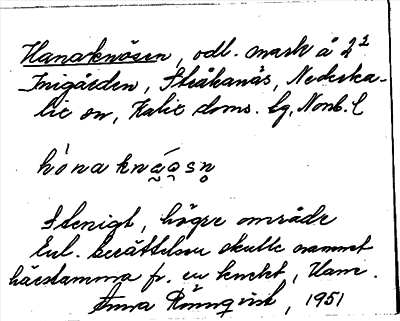 Hanaknösen, odl. mark å 2²
Inigården, Stråkanäs, Nederka-
lix sn, Kalix doms. lg, Nonb. l
hònaknáo̯sn̥
Stenigt, högre område
Enl. berättelser skulle namnet
härstamma fr. en knekt, Hane.
Anna Rönnqvist, 1951